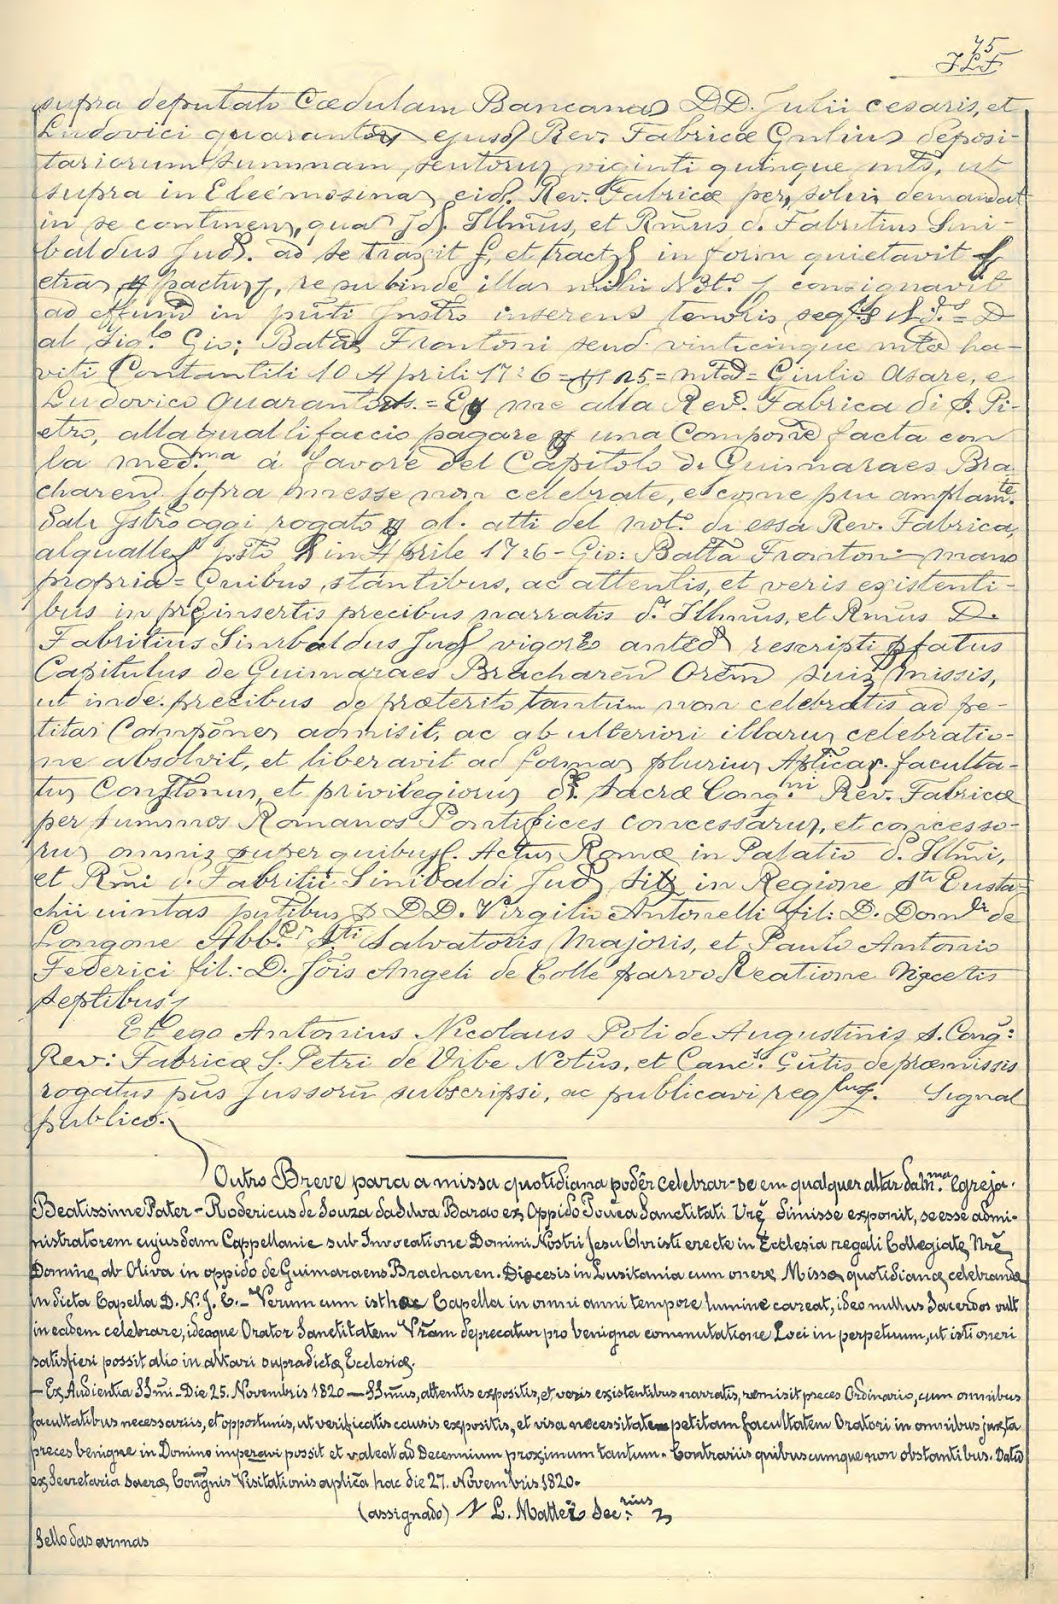 45
JLF
supra deputato Cædulam Bancana DD. Julii cesaris, et
Ludovici quarant ejusd Rev. Fabricæ Gnlius deposi-
tariorum summam, scutorum viginti quinque mtæ, ut
supra in Eleemosinam eid. Rev. Fabricæ per, solui demandat
in se continen, qua Jd. Illmus, et Rmus d. Fabritius Sini-
baldus Jud. ad se traxit et in form quietavit
etra pactu, te subinde illas mihi Not.º consignavit
ad effum in pnti Instro inseren tenoris seq
al Sig.º Gio: Batta Frontoni scud. vinticinque mta ha-
viti Contantili 10 Aprile 1726 = 25 = mta = Giulio Asare, e
Ludovico Quaranto = E me alla Rev. Fabrica di S. Pi-
etro, alla qual li faccio pagare una Compone facta con
la med.ma á favore del Capitolo de Guimaraes Bra
charen sopra messe non celebrate, e come piu amplam.te
dali Istro oggi rogato al. atti del not.º di essa Rev. Fabrica,
alqualle psto in Abrile 1726 - Gio: Batta Frontoni mano
propria = Cuibus, stantibus, ac attentis, et veris existenti-
bus in preinsertis precibus narratis d. Illmus, et Rmus D.
Fabritius Sinibaldus Jud vigore anted rescripti pfatus
Capitulus de Guimaraes Bracharen Orem suis missis,
ut inde precibus de præterito tantum non celebratis ad pe-
titas Compones admisit, ac ab ulteriori illarum celebratio-
ne absolvit, et liberavit ad formas plurium Aplicar. faculta-
tum Constonus, et privilegiorum d. Sacræ Cong.ni Rev. Fabricæ
per summos Romanos Pontifices concessarum, et concesso-
rum omniz super quibus. Actum Romæ in Palatio d. Illmi,
et Rmi d. Fabritii Sinibaldi Jud sit in Regione Sti Eusta-
chii vintas pntibus DD. Virgilio Antonelli fil: D. Dom de
Longone Abb. Sti Salvatoris Majoris, et Paulo Antonio
Federici fil: D. Jois Angeli de Colle parvo Reatione Diocetis
septibus
Et ego Antonius Nicolaus Poli de Augustinis S. Cong:
Rev: Fabricæ S. Petri de Urbe Notus, et Canc. Gntis de præmissis
rogatus pus Jussoru subscripsi, ac publicavi reqsus. Signal
publico.
Outro Breve para a missa quotidiana podêr celebrar-se em qualquer altar da m.ma Egreja.
Beatissime Pater - Rodericus de Souza da Silva Barao ex Oppido Pouca Sanctitati Vrę dimisse exponit, se esse admi-
nistratorem cujusdam Cappellanie sub Invocatione Domini Nostri Jesu Christi erecte in Ecclesia regali Collegiatę Nrę
Dominę ab Oliva in oppido de Guimaraens Bracharen. Diocesis in Lusitania cum onere Missę quotidianę celebrandę
in dicta Capella D. N. J. C. - Verum cum isthæc Capella in omni anni tempore lumine careat, ideo nullus Sacerdos vult
in eadem celebrare, ideoque Orator Sanctitatem Vram deprecatur pro benigna commutatione Loci in perpetuum, ut isti oneri
satisfieri possit alio in altari supradictę Ecclesię.
- Ex Audientia SSmi - Die 25. Novembris 1820 - SSmus, attentis expositis, et veris existentibus narratis, remisit preces Ordinario, cum omnibus
facultatibus necessariis, et opportunis, ut verificatis causis expositis, et visa necessitate petitam facultatem Oratori in omnibus juxta
preces benigne in Domino imperavi possit et valeat ad Decennium proximum tantum. Contrariis quibuscumque non obstantibus. Datū
ex Secretaria Sacrę Congñis Visitationis aplicā hac die 27. Novembris 1820.
(assignado) N L. Mattei Sec.rius
Sello das armas